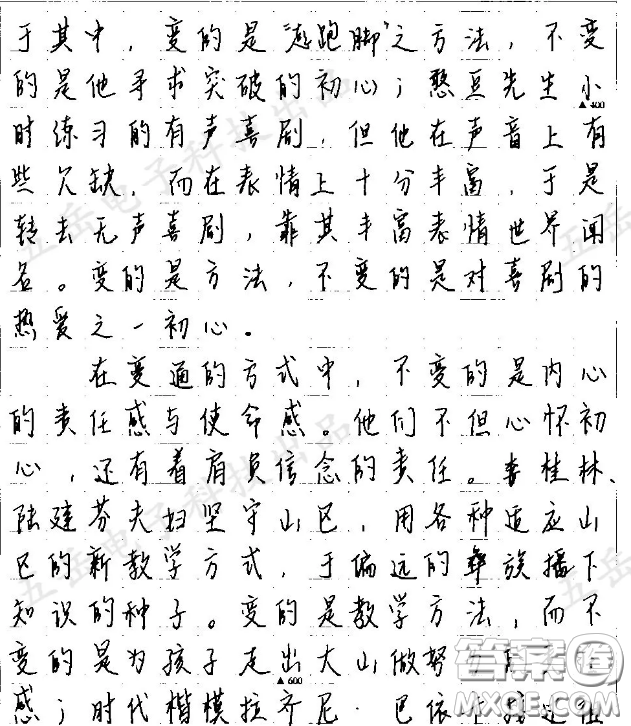 于其中，变的是“起跑脚”之方法，不变
的是他寻求突破的初心；憨豆先生小
时练习的有声喜剧，但他在声音上有
些欠缺，而在表情上十分丰富，于是
转去无声喜剧，靠其丰富表情世界闻
名。变的是方法，不变的是对喜剧的
热爱之一初心。
在变通的方式中，不变的是内心
的责任感与使命感。他们不但心怀初
心，还有着肩负信念的责任。李桂林、
陆建芬夫妇坚守山区，用各种适应山
区的新教学方式，于偏远的彝族播下
知识的种子。变的是教学方法，而不
变的是为孩子走出大山做努力的
感；时代楷模拉齐尼·巴依卡
▲400
▲600
五岳电子科技出品
答案圈
MXQE.COM